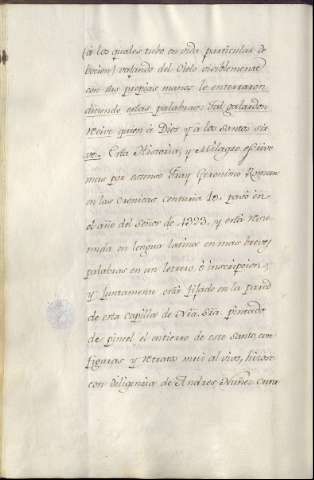 (á los quales tubo en vida particular de
vocion) vajando del Cielo visiblemente
con sus propias manos le enterraron
diciendo estas palabras: Tal galardon
recive quien á Dios y á los santos sir
ve. Esta Historia, y Milagro escrive
mas por estenso Fray Geronimo Roman
en las Cronicas, centuria 10. pasó en
el año del Señor de 1323, y está resu
mida en lengua latina en mas breves
palabras en un letrero, é inscripcion,
y juntamente está fijado en la pared
de esta capilla de Nra. Sra. pintado
de pincel el entierro de este santo, con
figuras, y retratos mui al vivo, hizose
con diligencia de Andres Nuñez Cura